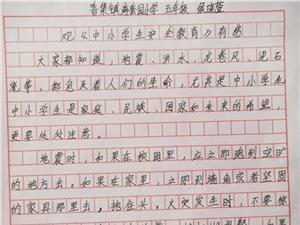 镇海小学 五年级
观《中小学生安全教育》有感
大家都知道，地震、洪水、龙卷风、泥石
流等，都危及着人们的生命，尤其是中小学生
中小学生是家庭、民族、国家和未来的希望，
更要处处注意。
地震时，如果在校园里，应立即跑到空旷
的地方去。如果在家里，立即到墙角或者坚固
的家具那里去，抱住头。火灾发生时，不要惊